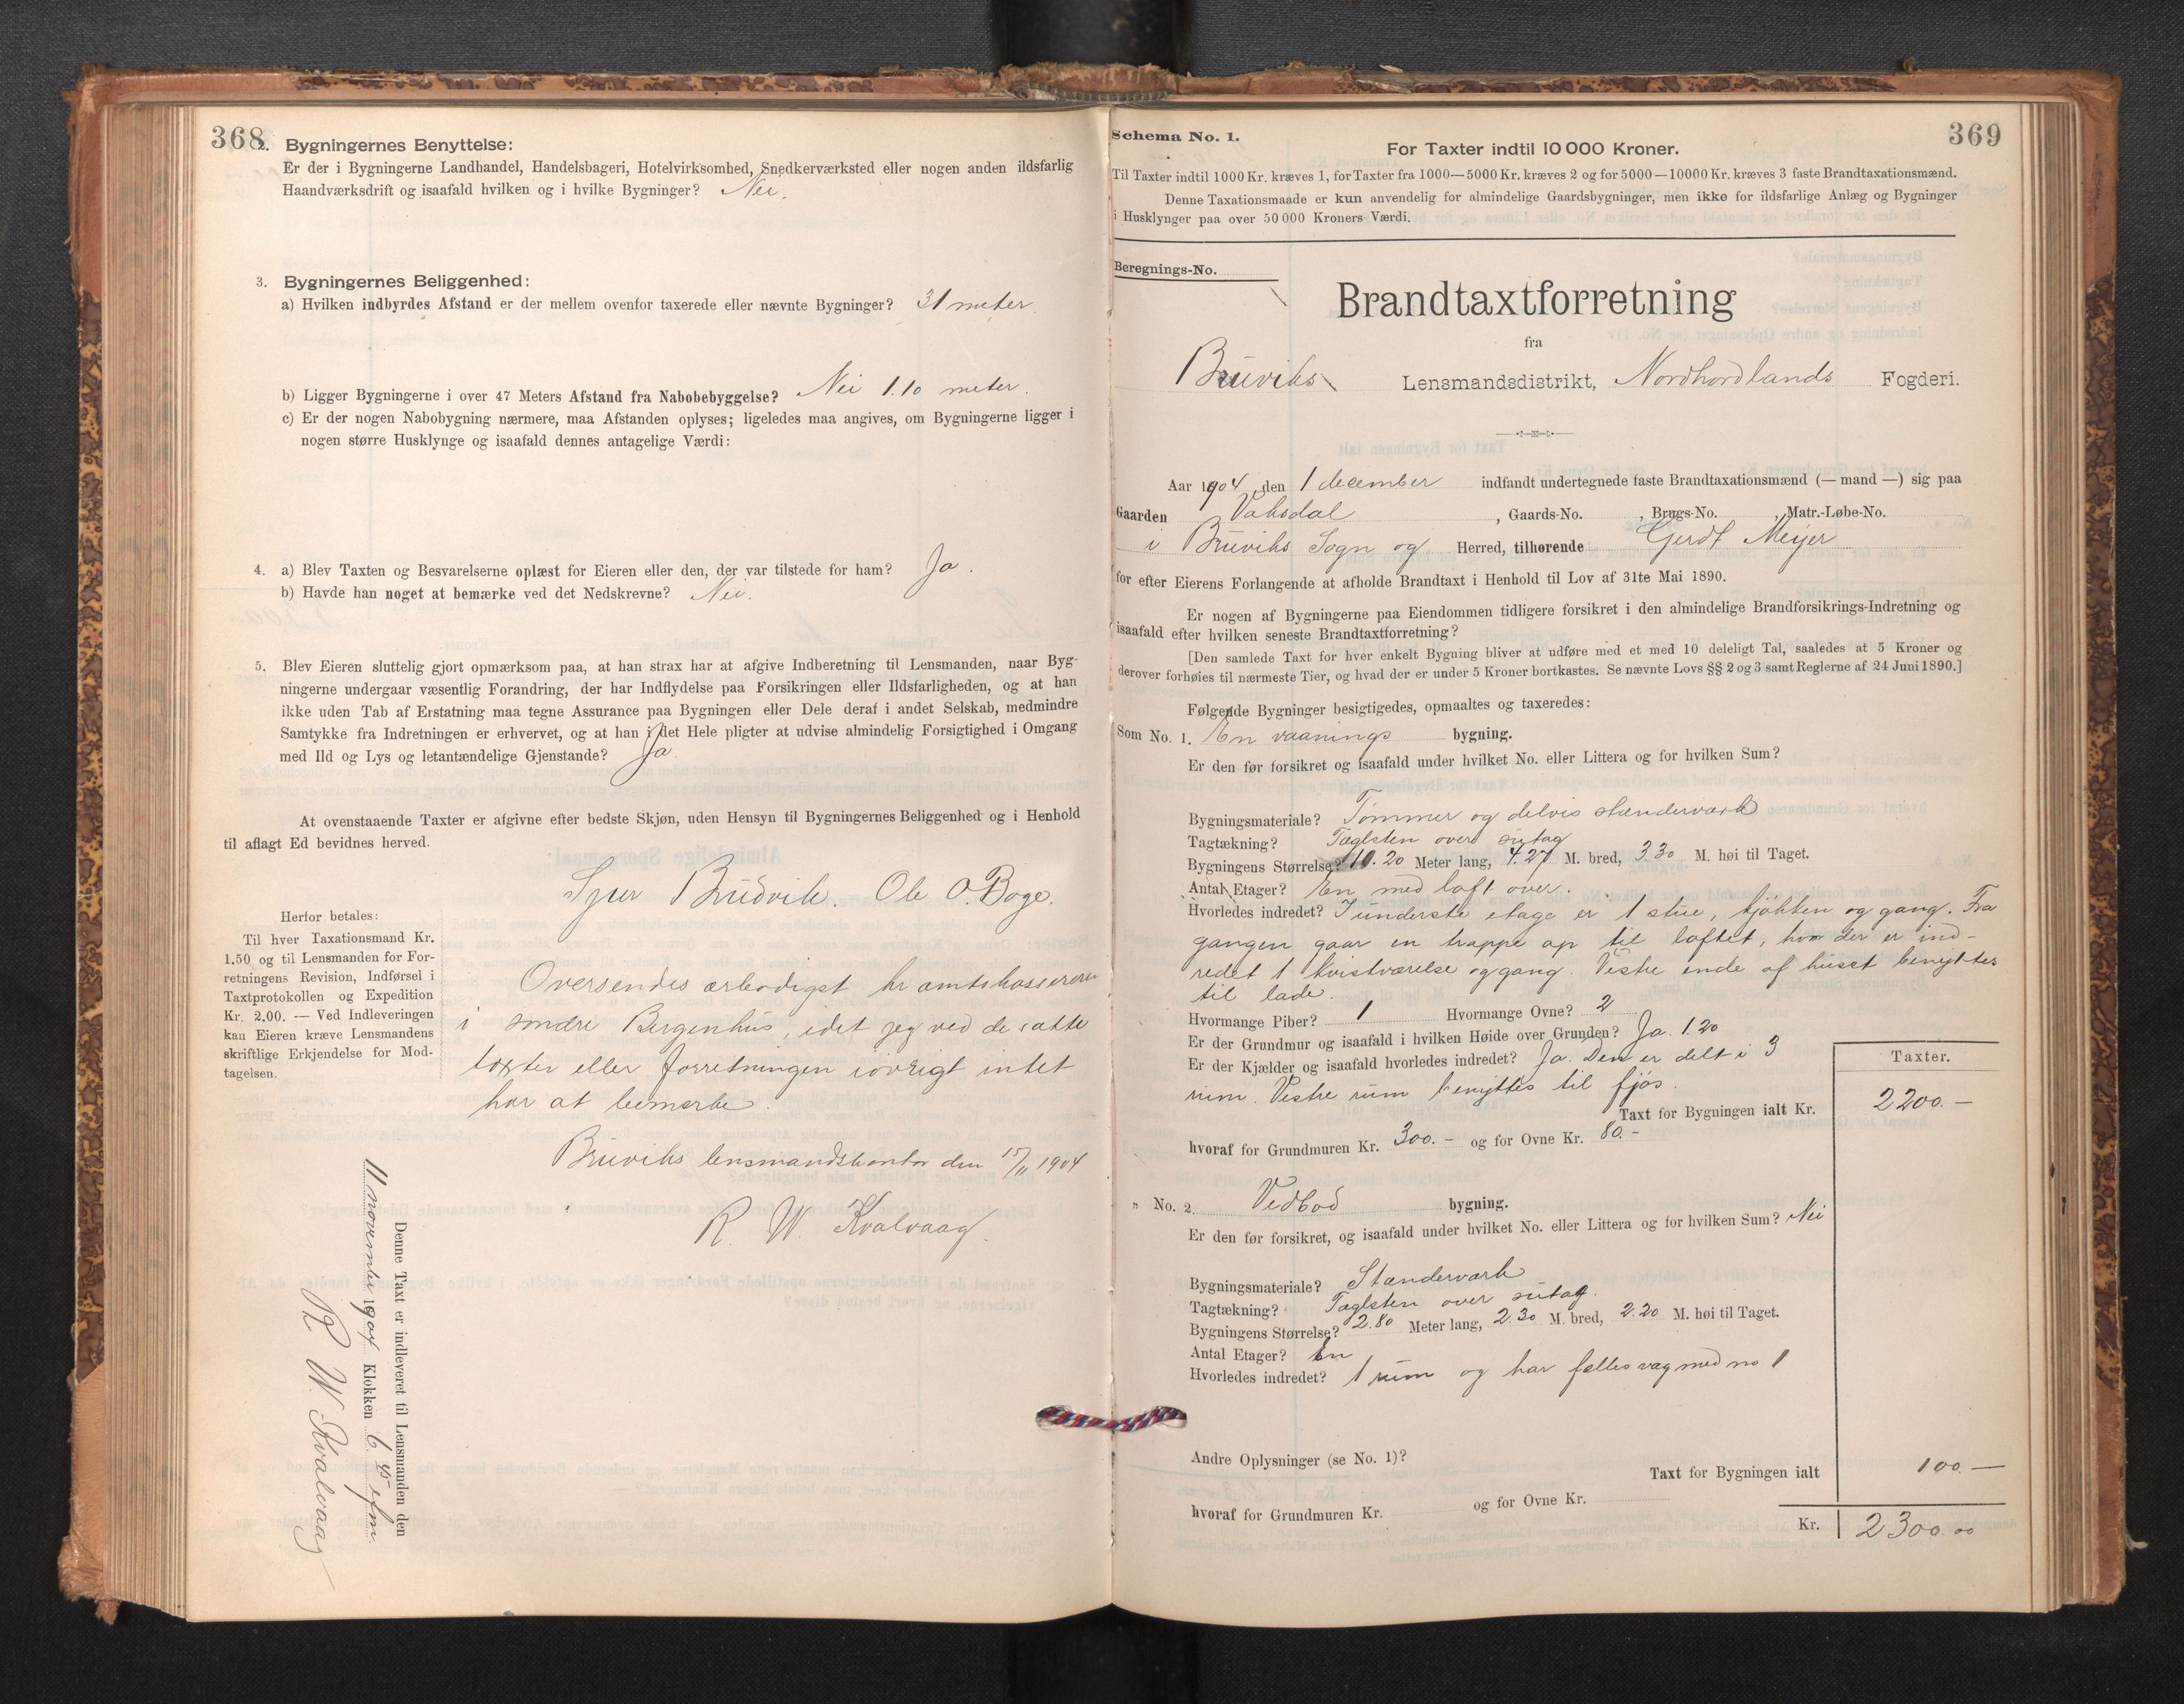 368
2. Bygningernes Benyttelse:
Er der i Bygningerne Landhandel, Handelsbageri, Hotelvirksomhed, Snedkerværksted eller nogen anden ildsfarlig
Haandværksdrift og isaafald hvilken og i hvilke Bygninger? Nei.
3. Bygningernes Beliggenhed:
a) Hvilken indbyrdes Afstand er der mellem ovenfor taxerede eller nævnte Bygninger? 31 meter.
b) Ligger Bygningerne i over 47 Meters Afstand fra Nabobebyggelse? Nei 1.10 meter.
c) Er der nogen Nabobygning nærmere, maa Afstanden oplyses; ligeledes maa angives, om Bygningerne ligger i
nogen større Husklynge og isaafald dennes antagelige Værdi:
4. a) Blev Taxten og Besvarelserne oplæst for Eieren eller den, der var tilstede for ham? Ja.
b) Havde han noget at bemærke ved det Nedskrevne? Nei.
5. Blev Eieren sluttelig gjort opmærksom paa, at han strax har at afgive Indberetning til Lensmanden, naar Byg-
ningerne undergaar væsentlig Forandring, der har Indflydelse paa Forsikringen eller Ildsfarligheden, og at han
ikke uden Tab af Erstatning maa tegne Assurance paa Bygningen eller Dele deraf i andet Selskab, medmindre
Samtykke fra Indretningen er erhvervet, og at han i det Hele pligter at udvise almindelig Forsigtighed i Omgang
med Ild og Lys og letantændelige Gjenstande? Ja.
At ovenstaaende Taxter er afgivne efter bedste Skjøn, uden Hensyn til Bygningernes Beliggenhed og i Henhold
til aflagt Ed bevidnes herved.
Sjur Brudvik. Ole O. Boge.
Herfor betales:
Til hver Taxationsmand Kr.
1.50 og til Lensmanden for For-
retningens Revision, Indførsel i
Taxtprotokollen og Expedition
Kr. 2.00. — Ved Indleveringen
kan Eieren kræve Lensmandens
skriftlige Erkjendelse for Mod-
tagelsen.
Oversendes ærbødigst hr amtskassereren
i søndre Bergenhus, idet jeg ved de satte
taxter eller forretningen iøvrigt intet
har at bemerke.
Bruviks lensmandskontor den 15/11 1904
R. W. Kvalvaag.
Denne Taxt er indleveret til Lensmanden den
11 november 1904 Klokken 6.45 efm.
R W. Kvalvaag
369
Schema No. 1.
For Taxter indtil 10 000 Kroner.
Til Taxter indtil 1000 Kr. kræves 1, for Taxter fra 1000—5000 Kr. kræves 2 og for 5000—10000 Kr. kræves 3 faste Brandtaxationsmænd.
Denne Taxationsmaade er kun anvendelig for almindelige Gaardsbygninger, men ikke for ildsfarlige Anlæg og Bygninger
i Husklynger paa over 50 000 Kroners Værdi.
Beregnings-No.
Brandtaxtforretning
fra
Bruviks Lensmandsdistrikt, Nordhordlands Fogderi.
Aar 1904 den 1 december indfandt undertegnede faste Brandtaxationsmænd (— mand —) sig paa
Gaarden Vaksdal, Gaards-No. , Brugs-No. , Matr.-Løbe-No.
i Bruviks Sogn og Herred, tilhørende Gerdt Meijer
for efter Eierens Forlangende at afholde Brandtaxt i Henhold til Lov af 31te Mai 1890.
Er nogen af Bygningerne paa Eiendommen tidligere forsikret i den almindelige Brandforsikrings-Indretning og
isaafald efter hvilken seneste Brandtaxtforretning?
[Den samlede Taxt for hver enkelt Bygning bliver at udføre med et med 10 deleligt Tal, saaledes at 5 Kroner og
derover forhøies til nærmeste Tier, og hvad der er under 5 Kroner bortkastes. Se nævnte Lovs §§ 2 og 3 samt Reglerne af 24 Juni 1890.]
Følgende Bygninger besigtigedes, opmaaltes og taxeredes:
Som No. 1. En vaanings bygning.
Er den før forsikret og isaafald under hvilket No. eller Littera og for hvilken Sum?
Bygningsmateriale? Tømmer og delvis stænderværk
Tagtækning? Taglsten over sutag
Bygningens Størrelse? 10.20 Meter lang, 4.27 M. bred, 3.30 M. høi til Taget.
Antal Etager? En med loft over.
Hvorledes indredet? I underste etage er 1 stue, kjøkken og gang. Fra
gangen gaar en trappe op til loftet, hvor der er ind-
redet 1 kvistværelse og gang. Vestre ende af huset benyttes
til lade.
Hvormange Piber? 1 Hvormange Ovne? 2
Er der Grundmur og isaafald i hvilken Høide over Grunden? Ja. 1.20
Er der Kjælder og isaafald hvorledes indredet? Ja. Den er delt i 3
rum. Vestre rum benyttes til fjøs.
Taxter.
Taxt for Bygningen ialt Kr. 2200.—
hvoraf for Grundmuren Kr. 300.— og for Ovne Kr. 80.—
" No. 2. Vedbod bygning.
Er den før forsikret, og isaafald under hvilket No. eller Littera og for hvilken Sum? Nei
Bygningsmateriale? Stænderværk
Tagtækning? Taglsten over sutag.
Bygningens Størrelse? 2.80 Meter lang, 2.30 M. bred, 2.20 M. høi til Taget.
Antal Etager? En
Hvorledes indredet? 1 rum og har fælles væg med no 1
Andre Oplysninger (se No. 1)?
Taxt for Bygningen ialt 100.—
hvoraf for Grundmuren Kr. og for Ovne Kr.
Kr. 2300.00